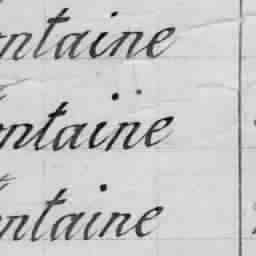 ontaine
ontaïne
ontaine